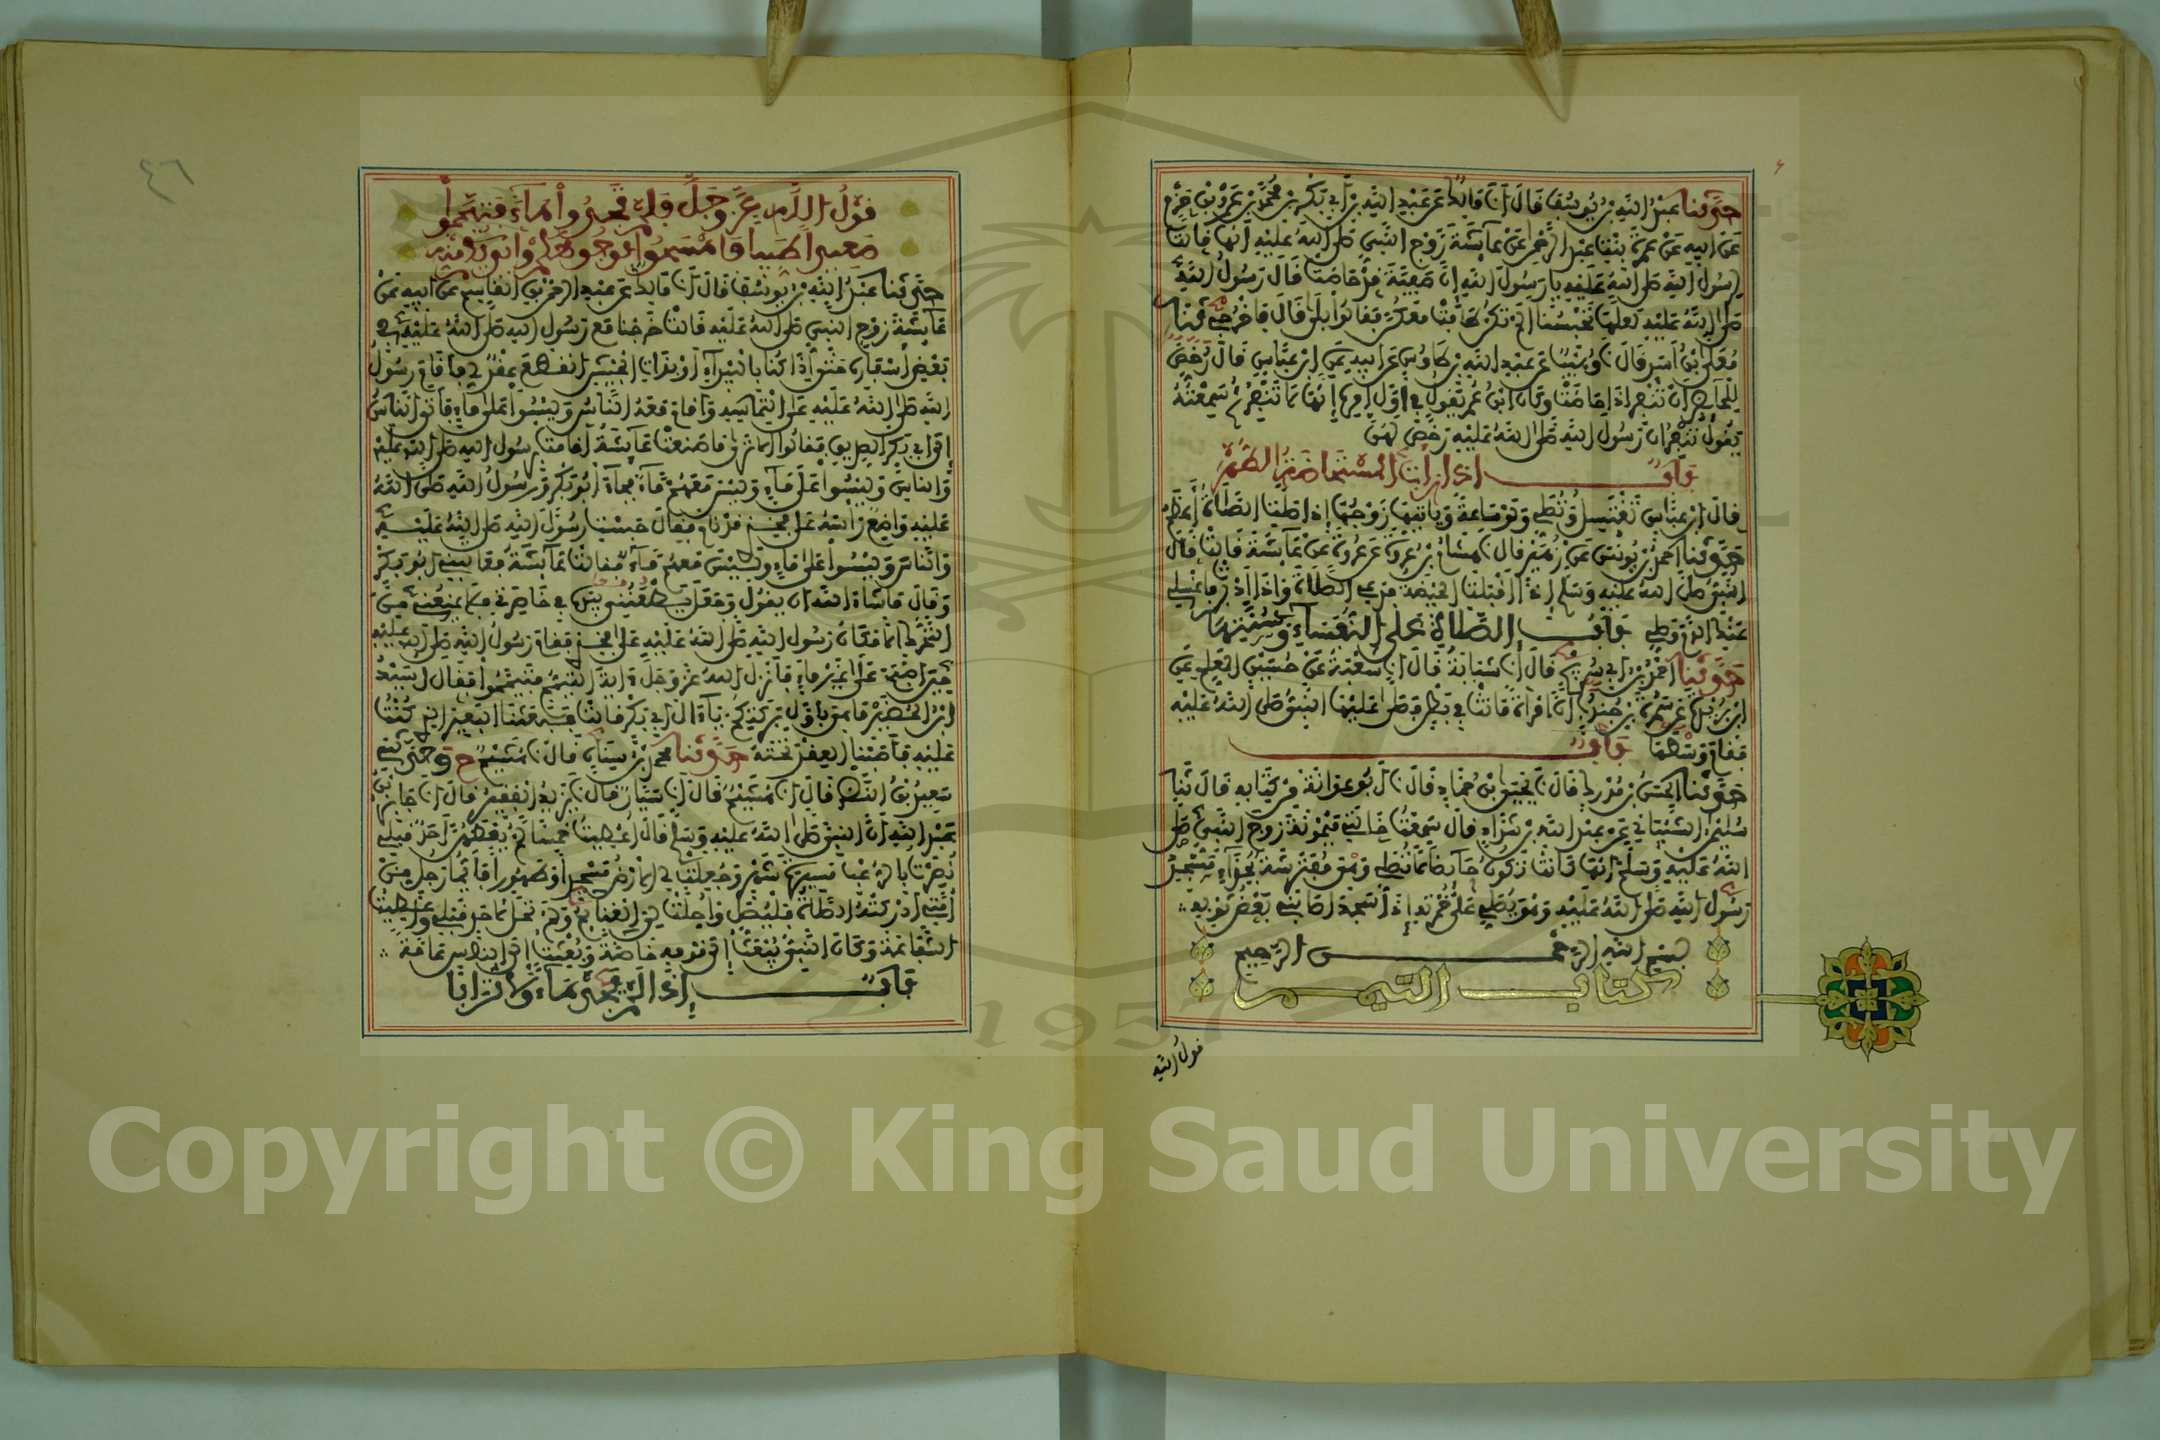 حدثنا عبد الله بن يوسف قال انا مالك عن عبد الله بن أبي بكر بن محمد بن عمرو بن حزم
عن أبيه عن عمرة بنت عبد الرحمن عن عائشة زوج النبي صلى الله عليه أنها قالت
لرسول الله صلى الله عليه يا رسول الله إن صفية قد حاضت قال رسول الله
صلى الله عليه لعلها تحبسنا ألم تكن طافت معكن فقالوا بلى قال فاخرجي حدثنا
معلى بن أسد قال نا وهيب عن عبد الله بن طاوس عن أبيه عن ابن عباس قال رخص
للحائض أن تنفر إذا حاضت وكان ابن عمر يقول في أول أمره إنها لا تنفر ثم سمعته
يقول تنفر إن رسول الله صلى الله عليه رخص لهن
باب إذا رأت المستحاضة الطهر
قال ابن عباس تغتسل وتصلي ولو ساعة ويأتيها زوجها إذا صلت الصلاة أعظم
حدثنا أحمد بن يونس عن زهير قال نا هشام بن عروة عن عروة عن عائشة قالت قال
النبي صلى الله عليه وسلم إذا أقبلت الحيضة فدعي الصلاة وإذا أدبرت فاغسلي
عنك الدم وصلي باب الصلاة على النفساء وسنتها
حدثنا أحمد بن أبي سريج قال انا شبابة قال انا شعبة عن حسين المعلم عن
ابن بريدة عن سمرة بن جندب أن امرأة ماتت في بطن فصلى عليها النبي صلى الله عليه
فقام وسطها باب
حدثنا الحسن بن مدرك قال نا يحيى بن حماد قال انا أبو عوانة من كتابه قال نا
سليمان الشيباني عن عبد الله بن شداد قال سمعت خالتي ميمونة زوج النبي صلى
الله عليه وسلم أنها كانت تكون حائضا لا تصلي وهي مفترشة بحذاء مسجد
رسول الله صلى الله عليه وهو يصلي على خمرته إذا سجد أصابني بعض ثوبه
بسم الله الرحمن الرحيم
كتاب التيمم
قول الله
٤٦
قول الله عز وجل فلم تجدوا ماء فتيمموا
صعيدا طيبا فامسحوا بوجوهكم وأيديكم منه
حدثنا عبد الله بن يوسف قال انا مالك عن عبد الرحمن بن القاسم عن أبيه عن
عائشة زوج النبي صلى الله عليه قالت خرجنا مع رسول الله صلى الله عليه في
بعض أسفاره حتى إذا كنا بالبيداء أو بذات الجيش انقطع عقد لي فأقام رسول
الله صلى الله عليه على التماسه وأقام معه الناس وليسوا على ماء فأتى الناس
إلى أبي بكر الصديق فقالوا ألا ترى ما صنعت عائشة أقامت برسول الله صلى الله عليه
والناس وليسوا على ماء وليس معهم ماء فجاء أبو بكر ورسول الله صلى الله
عليه واضع رأسه على فخذي قد نام فقال حبست رسول الله صلى الله عليه
والناس وليسوا على ماء وليس معهم ماء فقالت عائشة فعاتبني أبو بكر
وقال ما شاء الله أن يقول وجعل يطعنني بيده في خاصرتي فلا يمنعني من
التحرك إلا مكان رسول الله صلى الله عليه على فخذي فقام رسول الله صلى الله عليه
حين أصبح على غير ماء فأنزل الله عز وجل آية التيمم فتيمموا فقال أسيد
ابن الحضير ما هي بأول بركتكم يا آل أبي بكر قالت فبعثنا البعير الذي كنت
عليه فأصبنا العقد تحته حدثنا محمد بن سنان قال نا هشيم ح وحدثني
سعيد بن النضر قال انا هشيم قال انا سيار قال نا يزيد الفقير قال انا جابر بن
عبد الله أن النبي صلى الله عليه وسلم قال أعطيت خمسا لم يعطهن أحد قبلي
نصرت بالرعب مسيرة شهر وجعلت لي الأرض مسجدا وطهورا فأيما رجل من
أمتي أدركته الصلاة فليصل وأحلت لي الغنائم ولم تحل لأحد قبلي وأعطيت
الشفاعة وكان النبي يبعث إلى قومه خاصة وبعثت إلى الناس عامة
باب إذا لم يجد ماء ولا ترابا
Copyright © King Saud University
1957